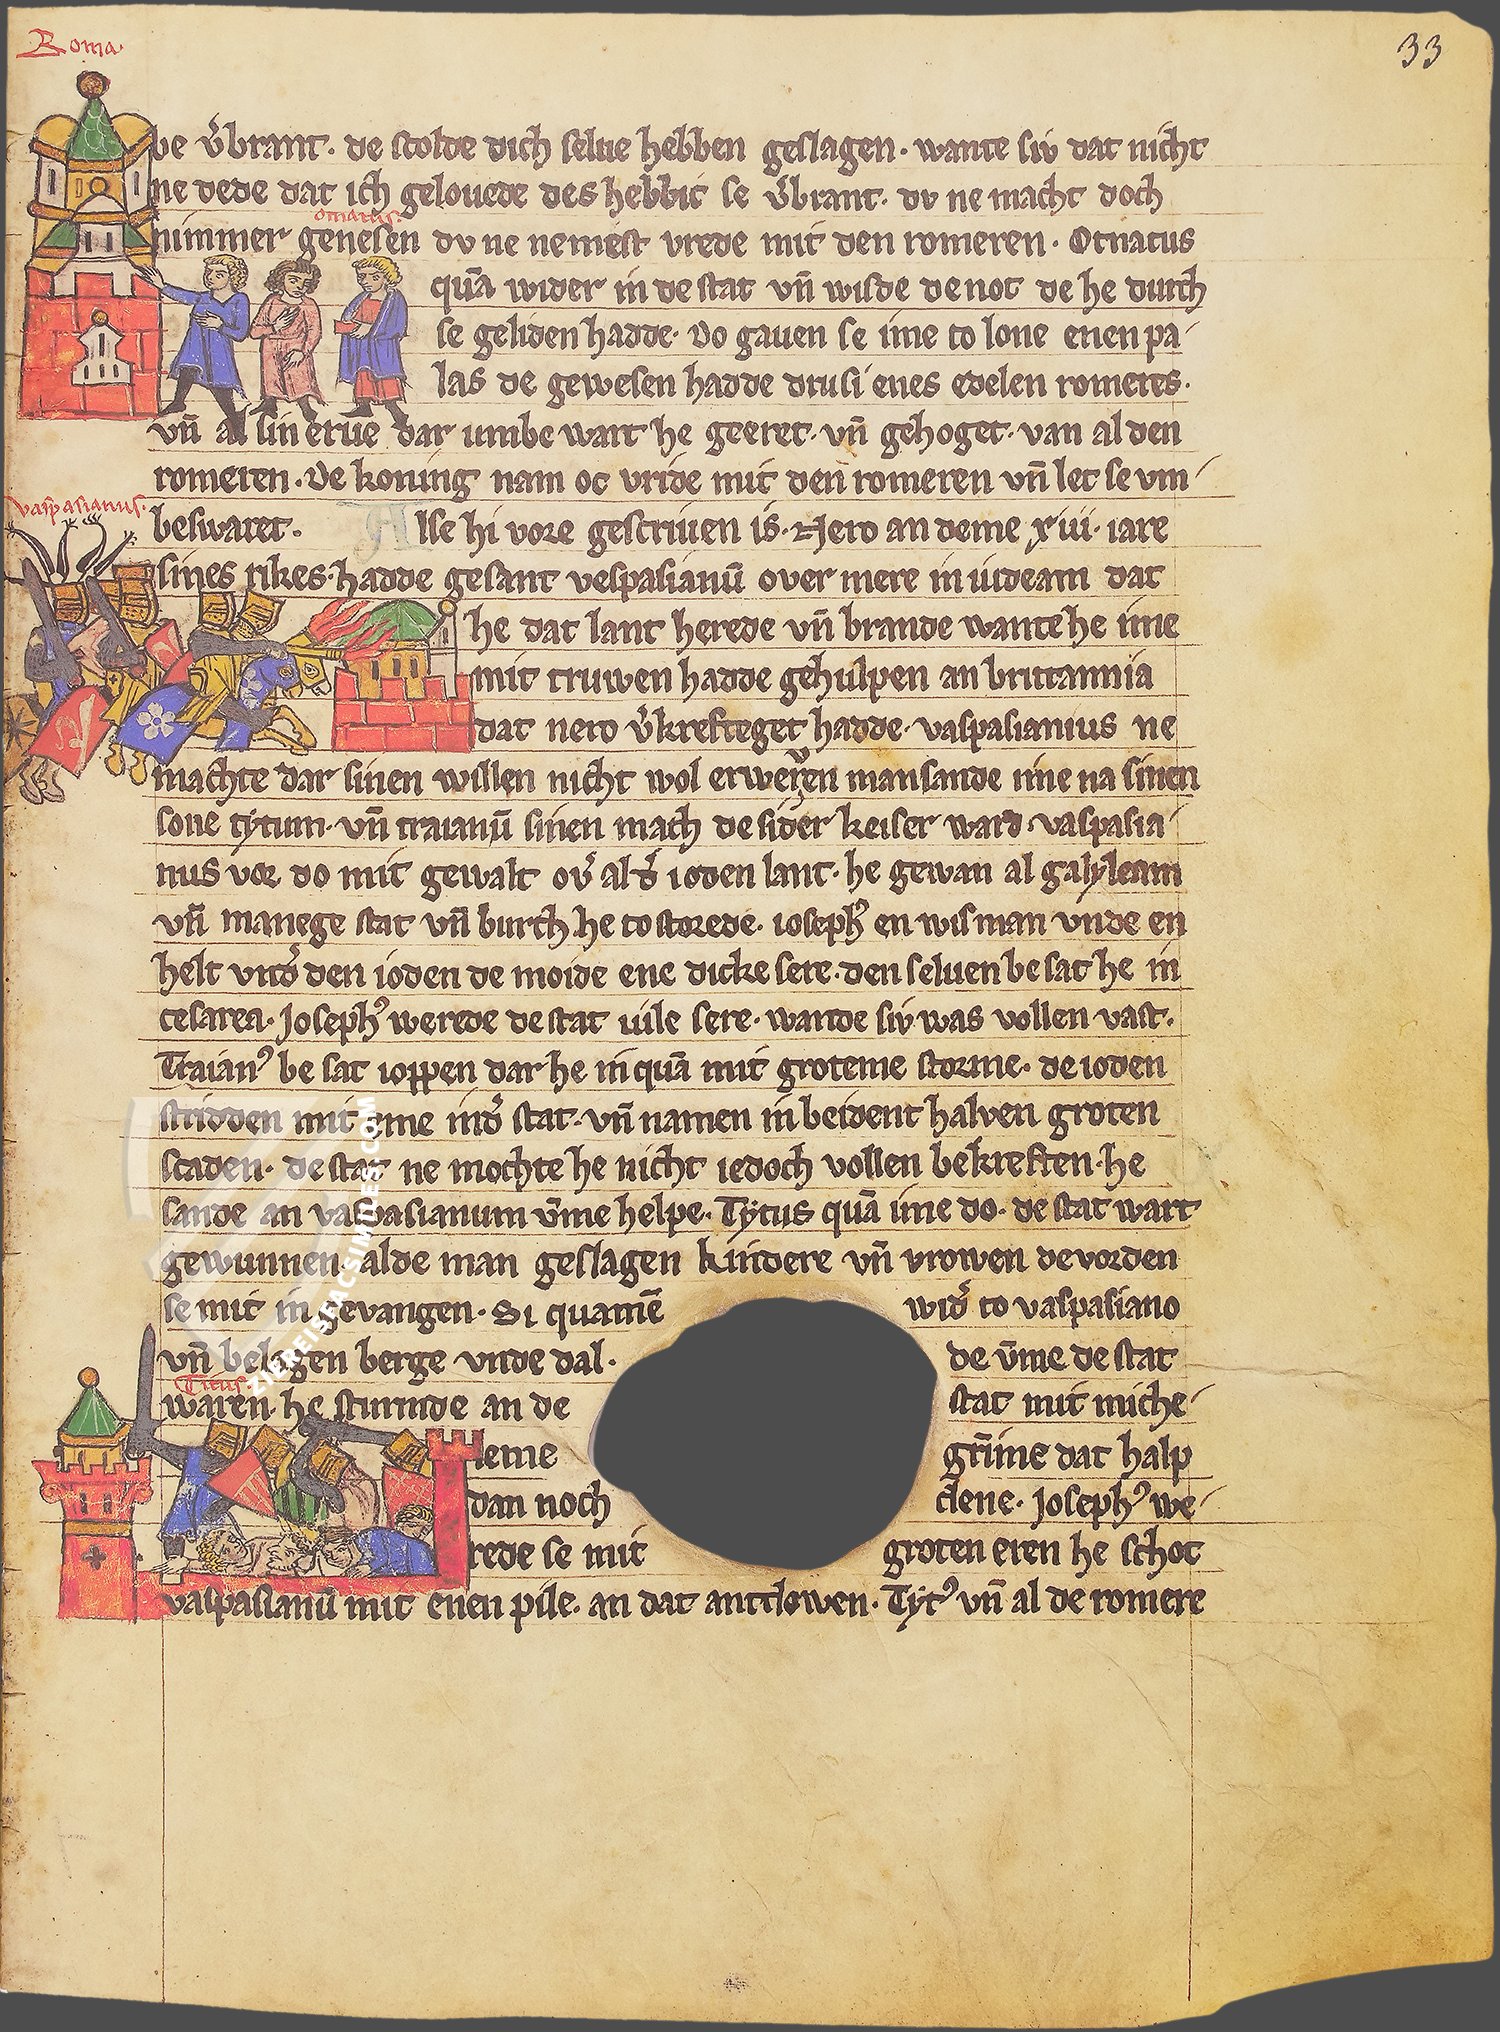 Roma.
33
be v͛brant. de scolde dich selue hebben geslagen. wante siv dat nicht
ne dede dat ich gelouede des hebbic se v͛brant. dv ne macht doch
omatus.
nimmer genesen dv ne nemest vrede mit den romeren. Otnatus
quā wider in de stat vn̄ wisde de not de he durch
se geliden hadde. Do gauen se ime to lone enen pa-
las de gewesen hadde drusi enes edelen romeres.
vn̄ al sin erue dar umbe wart he geeret. vn̄ gehoget. van al den
romeren. De koning nam oc vride mit den romeren vn̄ let se vm-
vaspasianus.
beswaret. Alse hi vore gescriuen is. Nero an deme xiiii. iare
sines rikes. hadde gesant vespasianū over mere in iudeam dat
he dat lant herede vn̄ brande wante he ime
mit truwen hadde gehulpen an brittannia
dat nero v͛krefteget hadde. vaspasianius ne
machte dar sinen willen nicht wol erweruen man sande ime na sinen
sone tytum. vn̄ traianū sinen mach de sider keiser ward. vaspasia-
nus vor do mit gewalt ov͛ al d͛ ioden lant. he gewan al galyleam
vn̄ manege stat vn̄ burch he to storede. ioseph᾿ en wis man vnde en
helt vnd͛ den ioden de moide ene dicke sere. den seluen be sat he in
cesarea. Joseph᾿ werede de stat uile sere. wande siv was vollen vast.
Traian᾿ be sat ioppen dar he in quā mit groteme storme. de ioden
stridden mit eme in d͛ stat. vn̄ namen in beident halven groten
scaden. de stat ne mochte he nicht iedoch vollen bekreften. he
sande an vaspasianum v̄me helpe. Tytus quā ime do. de stat wart
gewunnen. al de man geslagen kindere vn̄ vrowen de vorden
se mit in gevangen. Si quamē wid͛ to vaspasiano
vn̄ belagen berge vnde dal. de v̄me de stat
Titus.
waren. he sturmde an de stat mit miche-
leme gr̄me dat halp
dan noch clene. Joseph᾿ we-
rede se mit groten eren he schot
vaspasianū mit enen pile. an dat antclowen. Tyt᾿ vn̄ al de romere
ZIEREIS FACSIMILES.COM